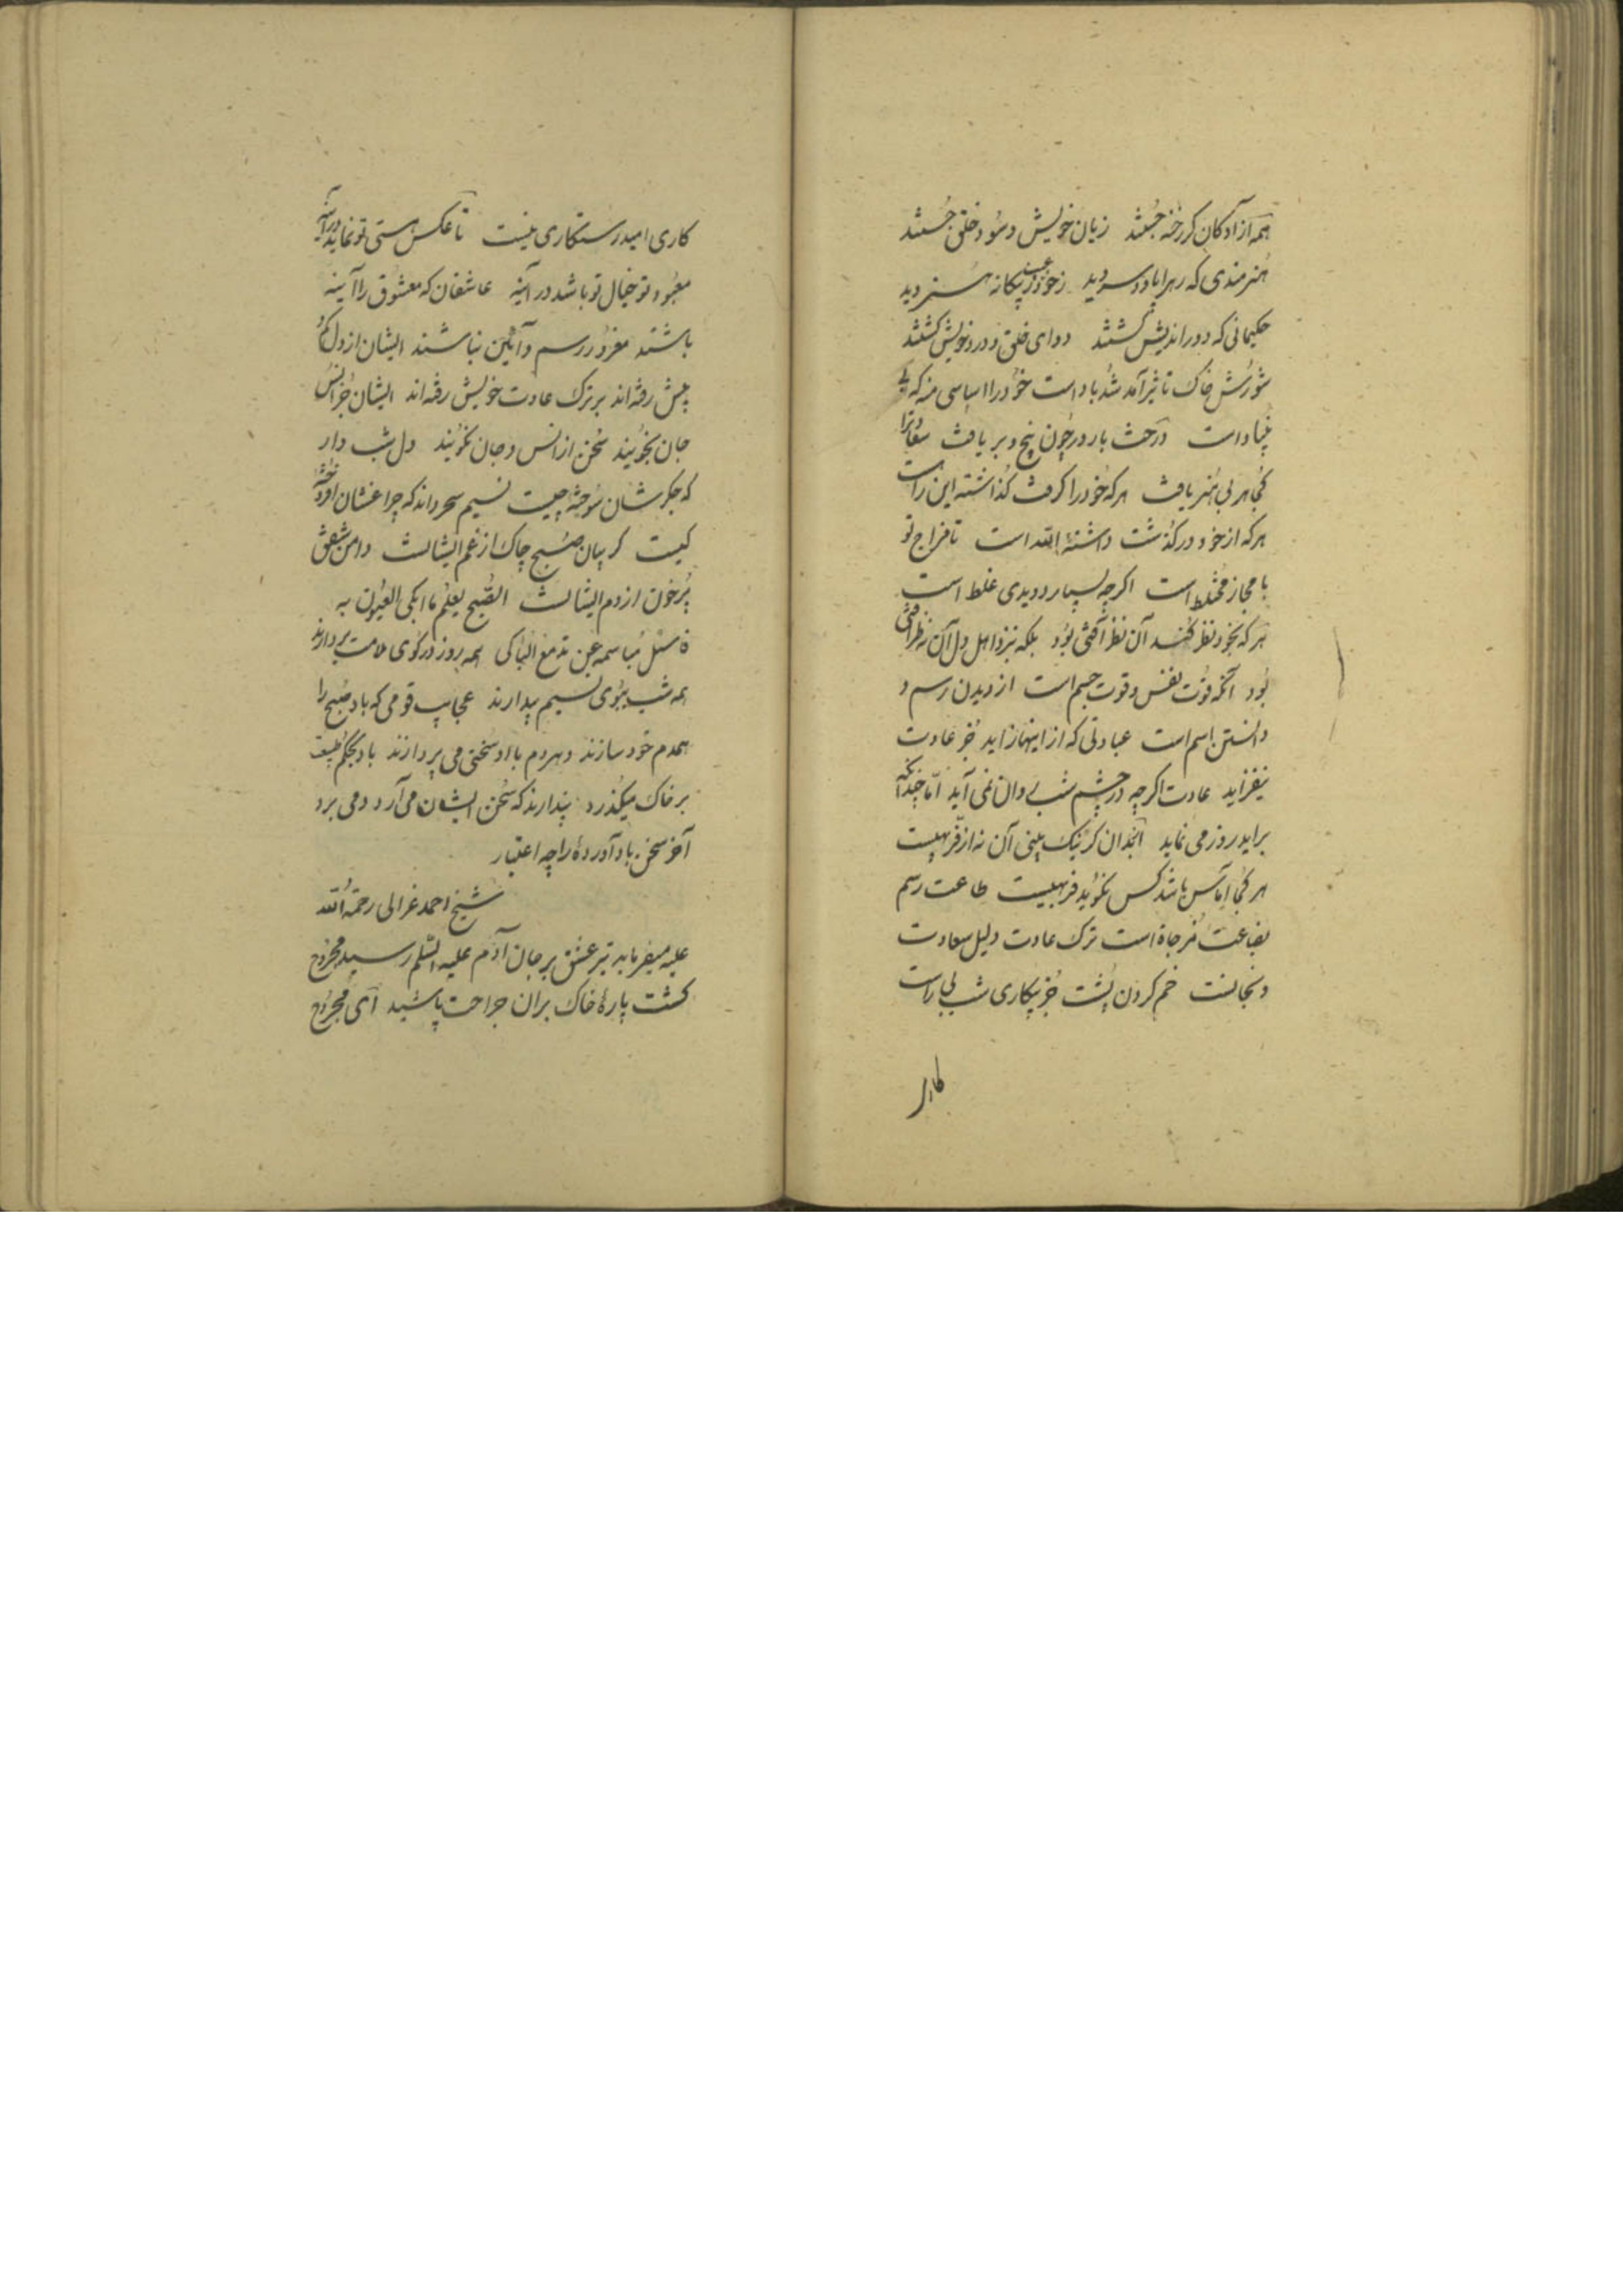 همه آزادکان کز رخنه جستند زیان خویش و سود خلق جستند
هنرمندی که زهر اباد و سر دید ز خود عیب و ز بیکانه هنر دید
حکیمانی که دوراندیش کشتند دوای خلق و درد خویش کشتند
شورش خاک تاثیر آمد شد باد است خود را اساسی منه که بی
بنیاد است درخت بارور چون بیخ و بر یافت سعادترا
کجا هر بی هنر یافت هرکه خود را کرفت کذاشته این راست
هرکه از خود درکذشت داشتهٔ الله است تا مزاج تو
با مجاز مختلط است اکرچه بسیار دویدی غلط است
هرکه بخود نظر کند آن نظر آفتی بود بلکه نزد اهل دل آن نظر آفتی
بود آنکه قوت نفس و قوت جسم است از دیدن رسم و
دانستن اسم است عبادتی که از اینها زاید جز عادت
نیفزاید عادت اکرچه در چشم شب روان نمی آید اما چندانکه
براید روز می نماید آنچندان کز نیک بینی آن نه از فربهیست
هر کجا آماس باشد کس نکوید فربهیست طاعت رسم
بضاعت مزجاة است ترک عادت دلیل سعادت
و نجاتست خم کردن پشت جز بیکاری شب بی راست
کاری
کاری امید رستکاری نیست تا عکس هستی تو نماید در آینه
معبود تو خیال تو باشد در آینه عاشقان که معشوق را آینه
باشند مغرور رسم و آئین نباشند ایشان از دل کم و
بیش رفته اند بر ترک عادت خویش رفته اند ایشان جز انس
جان نجویند سخن از انس و جان نکویند دل شب دار
که جکرشان سوخته چیست نسیم سحر داند که چراغشان افروخته
کیست کریبان صبح چاک از غم ایشانست دامن شفق
پرخون از دم ایشانست الصبح یعلم ما ابکی العیون به
فسئل مباسمه عن مدمع الباکی همه روز در کوی ملامت بر دارند
همه شب ببوی نسیم بیدارند عجایب قومی که باد صبح را
همدم خود سازند و هردم با او سخنی می پردازند باد بحکم طبیعت
بر خاک میکذرد پندارند که سخن ایشان می آرد و می برد
آخر سخن باد آوردهٔ را چه اعتبار
شیخ احمد غزالی رحمة الله
علیه میفرماید تیر عشق بر جان آدم علیه السلم رسید مجروح
کشت پارهٔ خاک بران جراحت پاشید آی مجروح